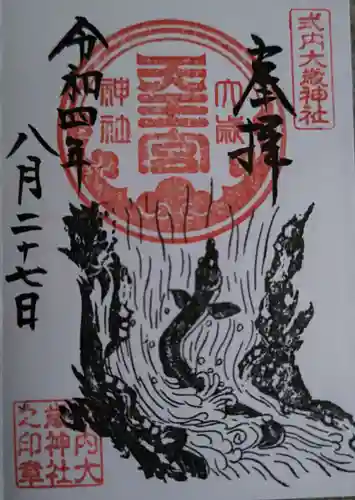 式内大歳神社
奉拝
大歳
天王宮
神社
令和四年
八月二十七日
式内大
歳神社
之印章